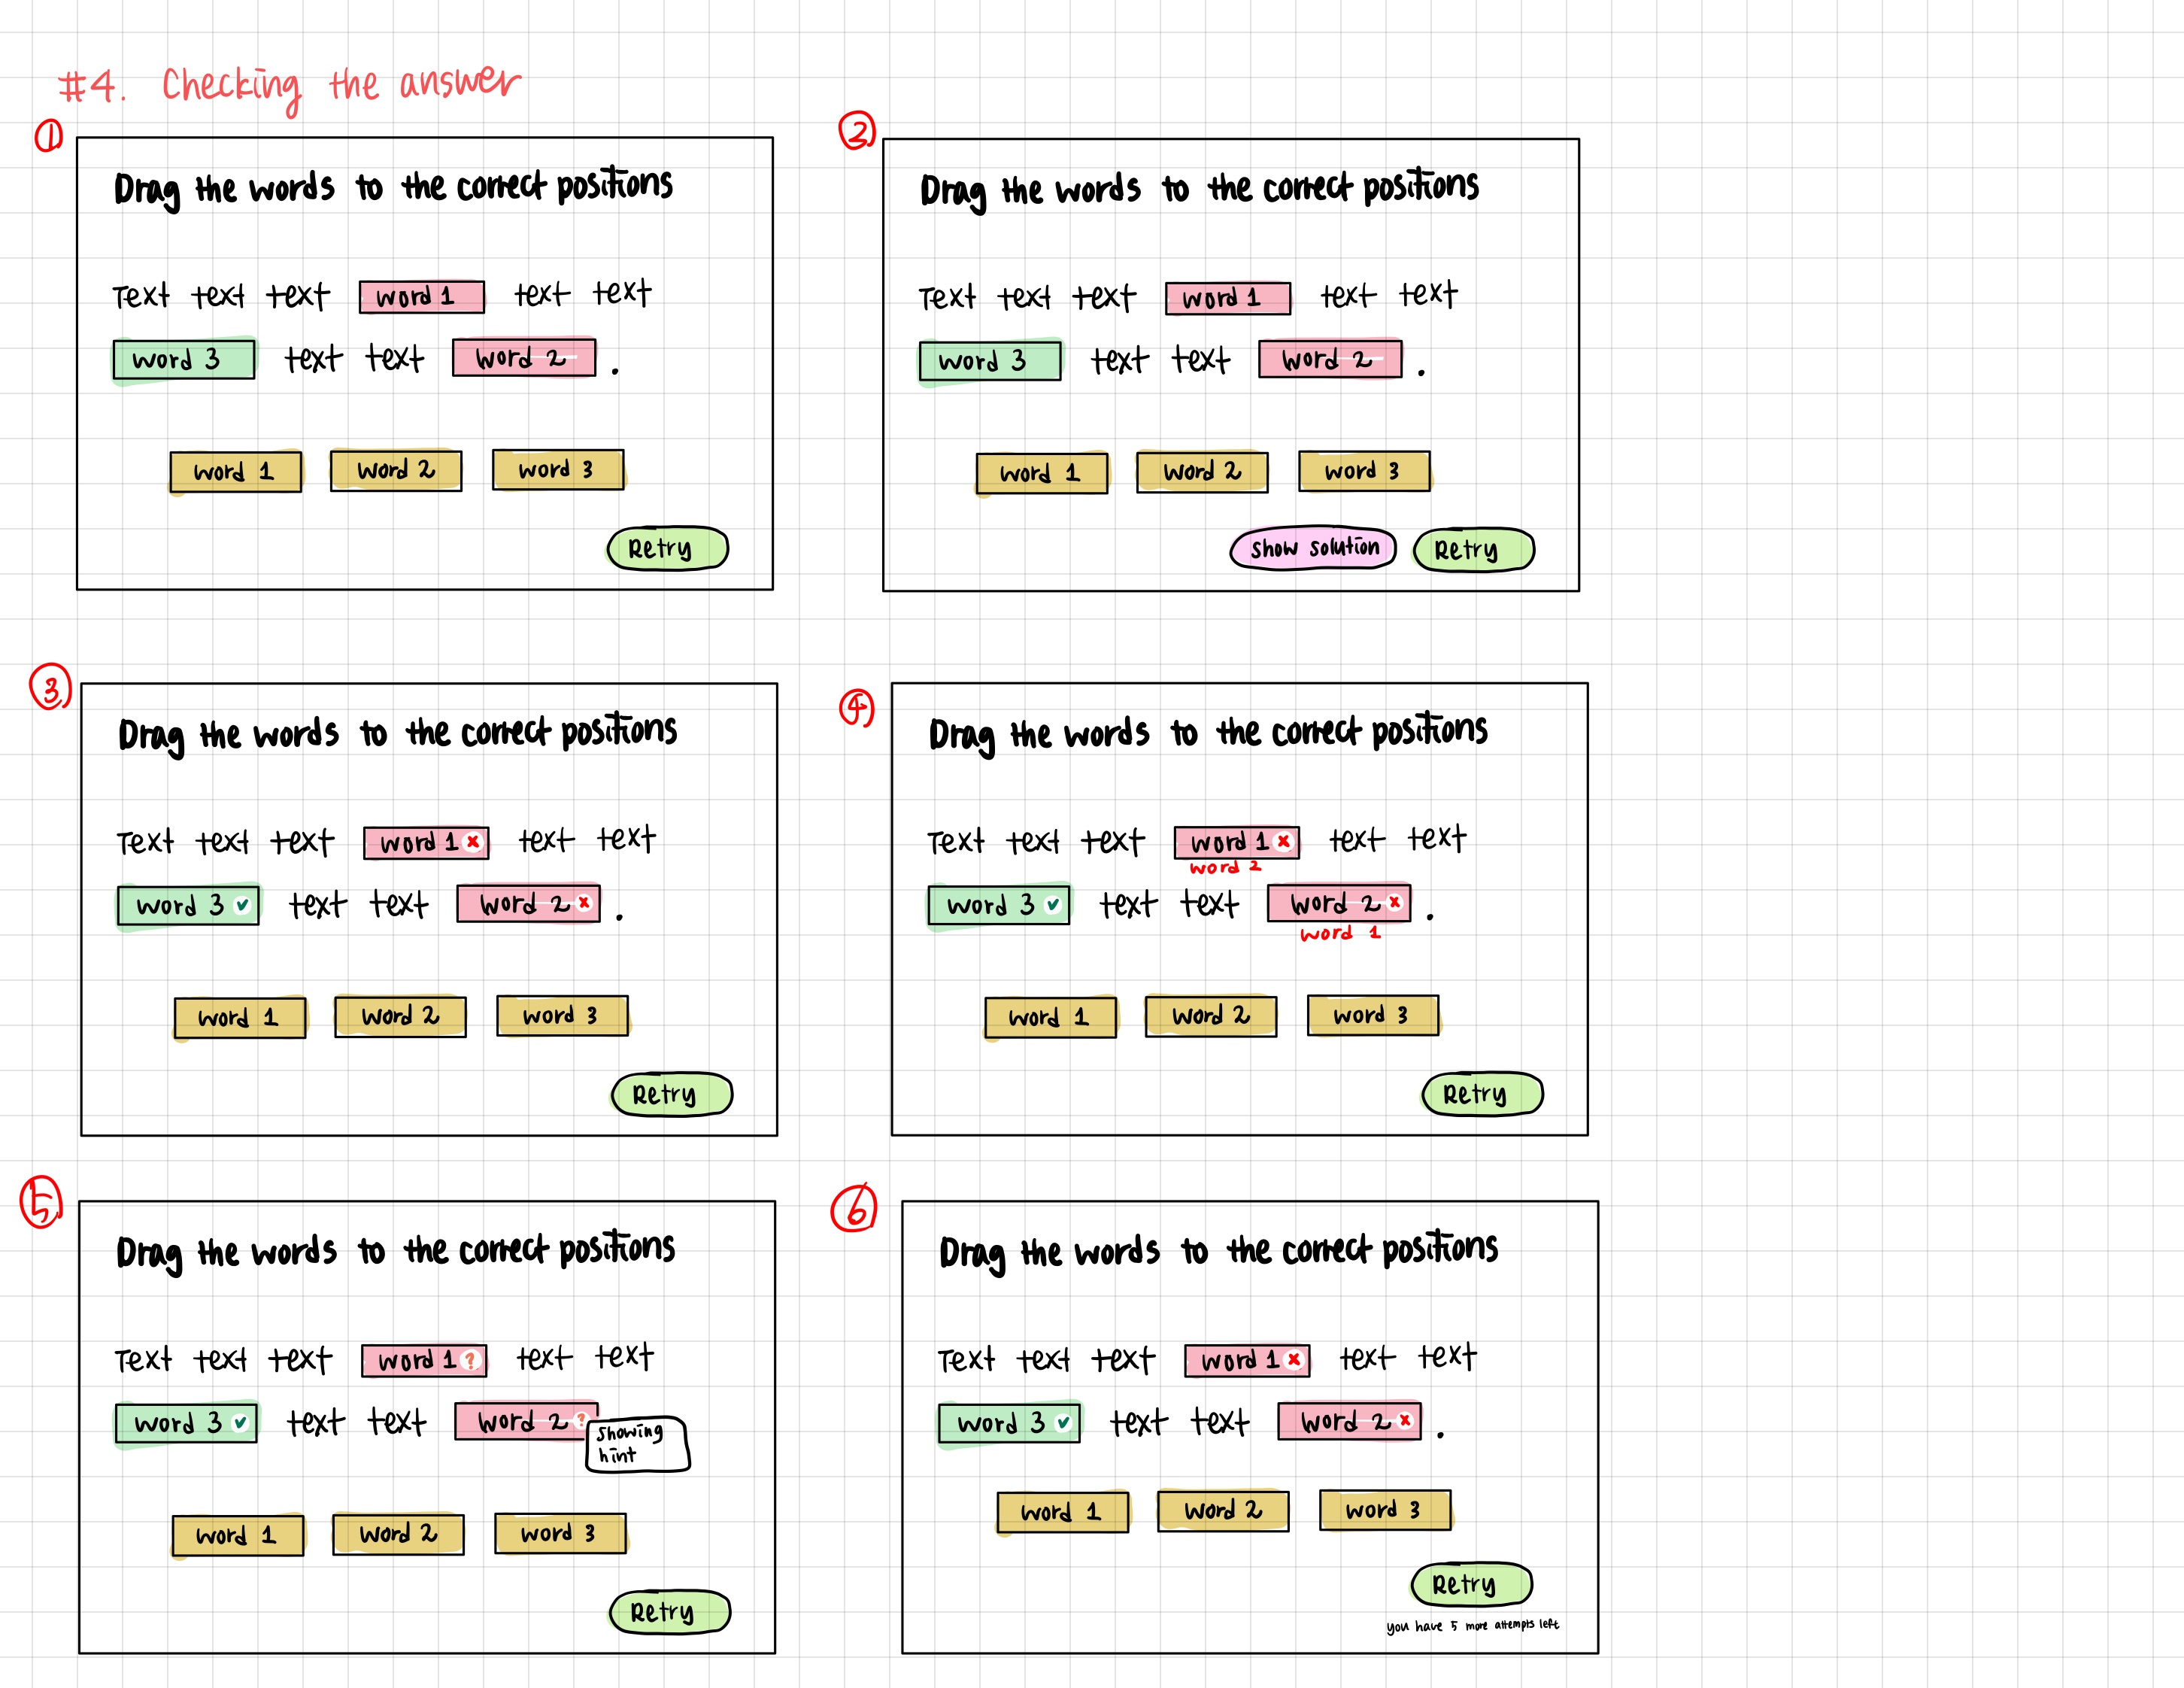 #4. Checking the answer
①
Drag the words to the correct positions
Text text text word 1 text text
word 3 text text word 2 .
word 1 word 2 word 3
Retry
②
Drag the words to the correct positions
Text text text word 1 text text
word 3 text text word 2 .
word 1 word 2 word 3
show solution Retry
③
Drag the words to the correct positions
Text text text word 1 text text
word 3 text text word 2 .
word 1 word 2 word 3
Retry
④
Drag the words to the correct positions
Text text text word 1 text text
word 2
word 3 text text word 2 .
word 1
word 1 word 2 word 3
Retry
⑤
Drag the words to the correct positions
Text text text word 1 ? text text
word 3 text text word 2 ?
showing
hint
word 1 word 2 word 3
Retry
⑥
Drag the words to the correct positions
Text text text word 1 text text
word 3 text text word 2 .
word 1 word 2 word 3
Retry
you have 5 more attempts left